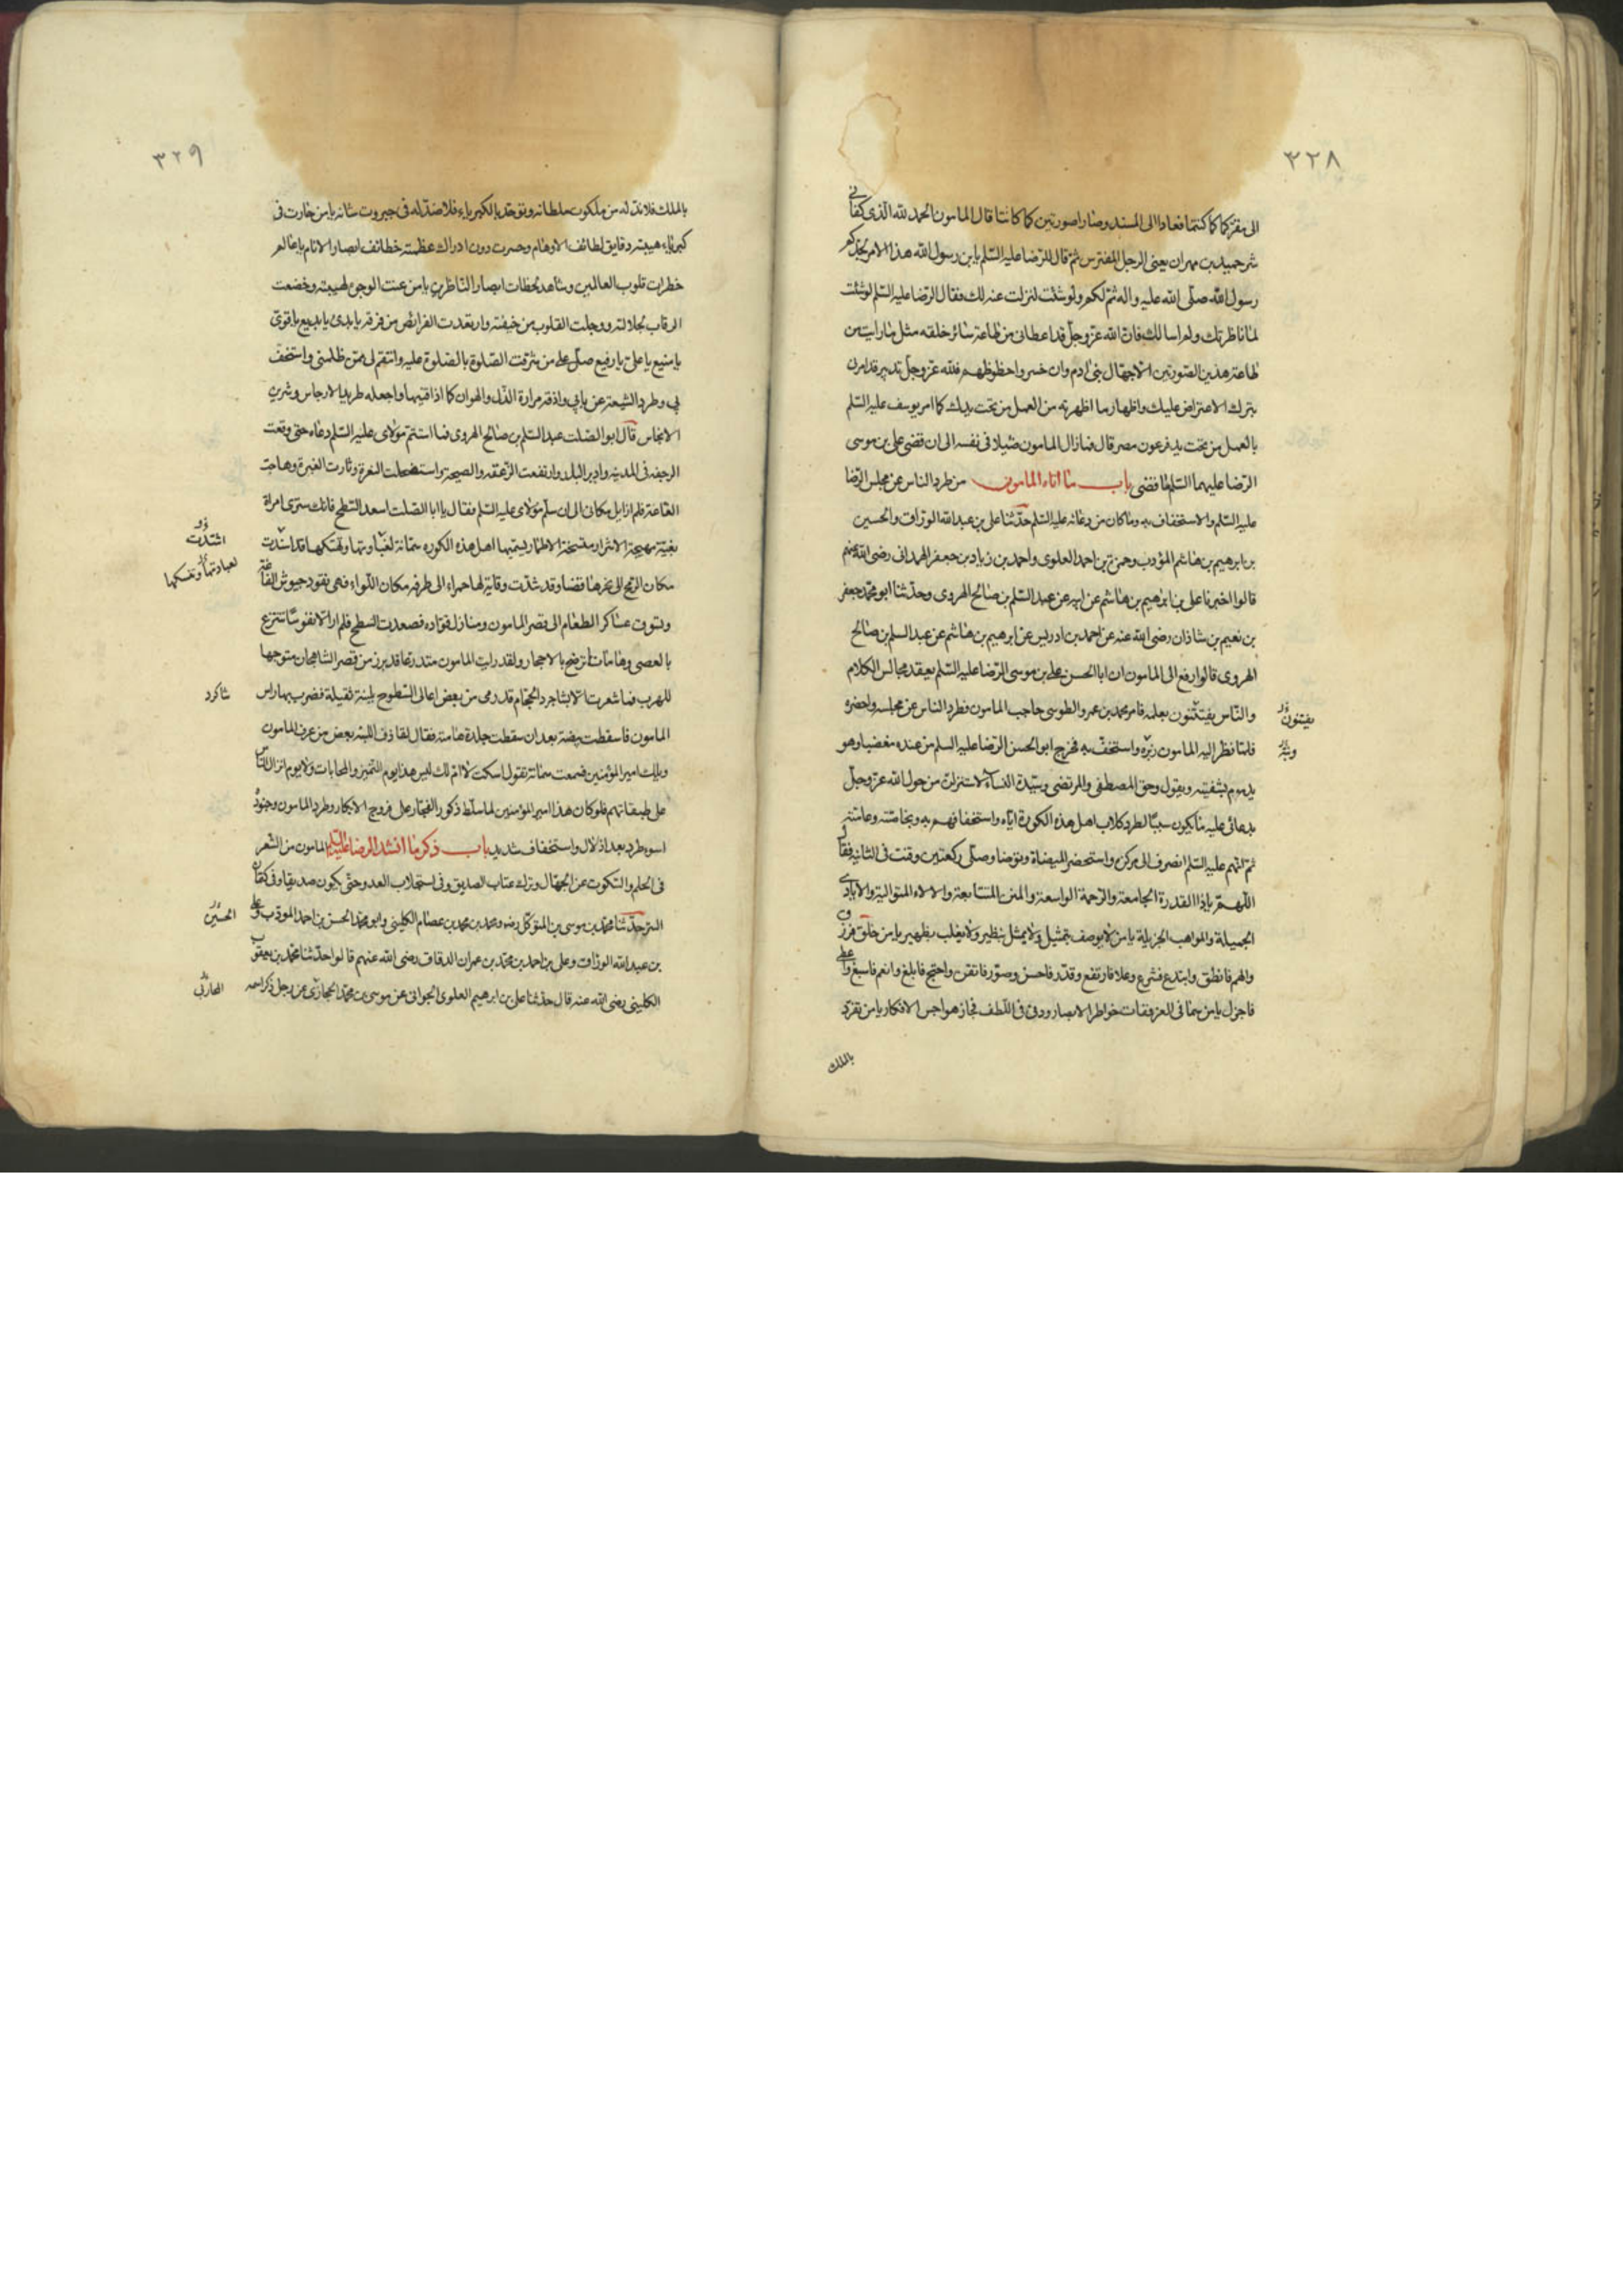 ٣٢٨
الى مقركما كما كنتما فعادا الى المسند وصارا صورتين كما كانتا قال المامون الحمد لله الذى كفانى
شر حميد بن مهران يعنى الرجل المفترس ثم قال للرضا عليه السلم يا بن رسول الله هذا الامر لجدكم
رسول الله صلى الله عليه واله ثم لكم ولو شئت لنزلت عنه لك فقال الرضا عليه السلم لو شئت
لما ناظرتك ولم اسالك فان الله عز وجل قد اعطانى من طاعة سائر خلقه مثل ما رايت من
طاعة هذين الصورتين الا جهال بنى ادم وان خسروا حظوظهم فلله عز وجل تدبير قد امرنى
بترك الاعتراض عليك واظهار ما اظهرته من العمل من تحت يدك كما امر يوسف عليه السلم
بالعمل من تحت يد فرعون مصر قال فما زال المامون ضئيلا فى نفسه الى ان قضى على بن موسى
الرضا عليهما السلم ما قضى باب ما اتاه المامون من طرد الناس عن مجلس الرضا
عليه السلم والاستخفاف به وما كان من دعائه عليه السلم حدثنا على بن عبد الله الوراق والحسين
بن ابرهيم بن هاشم المؤدب وحمزة بن احمد العلوى واحمد بن زياد بن جعفر الهمدانى رضى الله عنهم
قالوا اخبرنا على بن ابرهيم بن هاشم عن ابيه عن عبد السلم بن صالح الهروى وحدثنا ابو محمد جعفر
بن نعيم بن شاذان رضى الله عنه عن احمد بن ادريس عن ابرهيم بن هاشم عن عبد السلم بن صالح
الهروى قالوا رفع الى المامون ان ابا الحسن على بن موسى الرضا عليه السلم يعقد مجالس الكلام
والناس يفتتنون بعلمه فامر محمد بن عمرو الطوسى حاجب المامون فطرد الناس عن مجلسه واحضره
يفتنون
فلما نظر اليه المامون زبره واستخف به فخرج ابو الحسن الرضا عليه السلم من عنده مغضبا وهو
يدمدم بشفتيه ويقول وحق المصطفى والمرتضى وسيدة النساء لاستنزلن من حول الله عز وجل
بدعائى عليه ما يكون سببا لطرد كلاب اهل هذه الكورة اياه واستخفافهم به وبخاصته وعامته
ثم انهم عليه السلم انصرف الى مركزه واستحضر الميضاة وتوضا وصلى ركعتين وقنت فى الثانية فقال
اللهم يا ذا القدرة الجامعة والرحمة الواسعة والمنن المتتابعة والالاء المتوالية والايادى
الجميلة والمواهب الجزيلة يا من لا يوصف بتمثيل ولا يمثل بنظير ولا يغلب بظهير يا من خلق فرزق
والهم فانطق وابتدع فشرع وعلا فارتفع وقدر فاحسن وصور فاتقن واحتج فابلغ وانعم فاسبغ واعطى
فاجزل يا من سما فى العز ففات خواطر الابصار ودنى فى اللطف فجاز هواجس الافكار يا من تفرد
بالملك
٣٢٩
بالملك فلا ند له من ملكوت سلطانه وتوحد بالكبرياء فلا ضد له فى جبروت شانه يا من حارت فى
كبرياء هيبته دقايق لطائف الاوهام وحسرت دون ادراك عظمته خطائف ابصار الانام يا عالم
خطرات قلوب العالمين وشاهد لحظات ابصار الناظرين يا من عنت الوجوه لهيبته وخضعت
الرقاب لجلالته ووجلت القلوب من خيفته وارتعدت الفرائص من فرقه يا بدىء يا بديع يا قوى
يا منيع يا على يا رفيع صل على من شرفت الصلوة بالصلوة عليه وانتقم لى ممن ظلمنى واستخف
بى وطرد الشيعة عن بابى واذقه مرارة الذل والهوان كما اذاقنيها واجعله طريد الارجاس وشريد
الانجاس قال ابو الصلت عبد السلم بن صالح الهروى فما استتم مولاى عليه السلم دعاه حتى وقعت
الرجفة فى المدينة وادبر البلد وارتفعت الزعقة والصيحة واستفحلت النعرة وثارت الغبرة وهاجت
القاعة فلم ازايل مكانى الى ان سلم مولاى عليه السلم فقال يا ابا الصلت اصعد السطح فانك سترى امراة
بغية مهيجة الاشرار متسخة الاطمار يسميها اهل هذه الكورة سمانة لغباوتها وتهتكها قد اسندت
اشتدت
مكان الرمح الى نحرها قصبا وقد شدت وقاية لها حمراء الى طرفه مكان اللواء فهى تقود جيوش القاعة
وتسوق عساكر الطغام الى قصر المامون ومنازل قواده فصعدت السطح فلم ار الا نفوسا تنتزع
بالعصى وهامات ترضح بالاحجار ولقد رايت المامون متدرعا قد برز من قصر الشاهجان متوجها
للهرب فما شعرت الا بشاجرد الحجام قد رمى من بعض اعالى السطوح بلبنة ثقيلة فضرب بها راس
شاكرد
المامون فاسقطت بيضته بعد ان سقطت جلدة هامته فقال لقاذف اللبنة بعض من عرف المامون
ويلك امير المؤمنين فسمعت سمانة تقول اسكت لا ام لك ليس هذا يوم التميز والمحابات ولا يوم انزال الناس
على طبقاتهم فلو كان هذا امير المؤمنين لما سلط ذكور الفجار على فروج الابكار وطرد المامون وجنوده
اسوء طرد بعد اذلال واستخفاف شديد باب ذكر ما انشد الرضا عليه السلم المامون من الشعر
فى الحلم والسكوت عن الجهال وترك عتاب الصديق وفى استجلاب العدو حتى يكون صديقا وفى كتمان
السر حدثنا محمد بن موسى بن المتوكل رضه ومحمد بن محمد بن عصام الكلينى وابو محمد الحسن بن احمد المودب وعلى
الحسين
بن عبد الله الوراق وعلى بن احمد بن محمد بن عمران الدقاق رضى الله عنهم قالوا حدثنا محمد بن يعقوب
الكلينى رضى الله عنه قال حدثنا على بن ابرهيم العلوى الجوانى عن موسى بن محمد الحجازى عن رجل ذكر اسمه
المحاربى